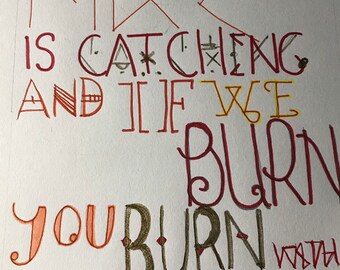 IS CATCHING
AND IF WE
BURN
YOU BURN WITH